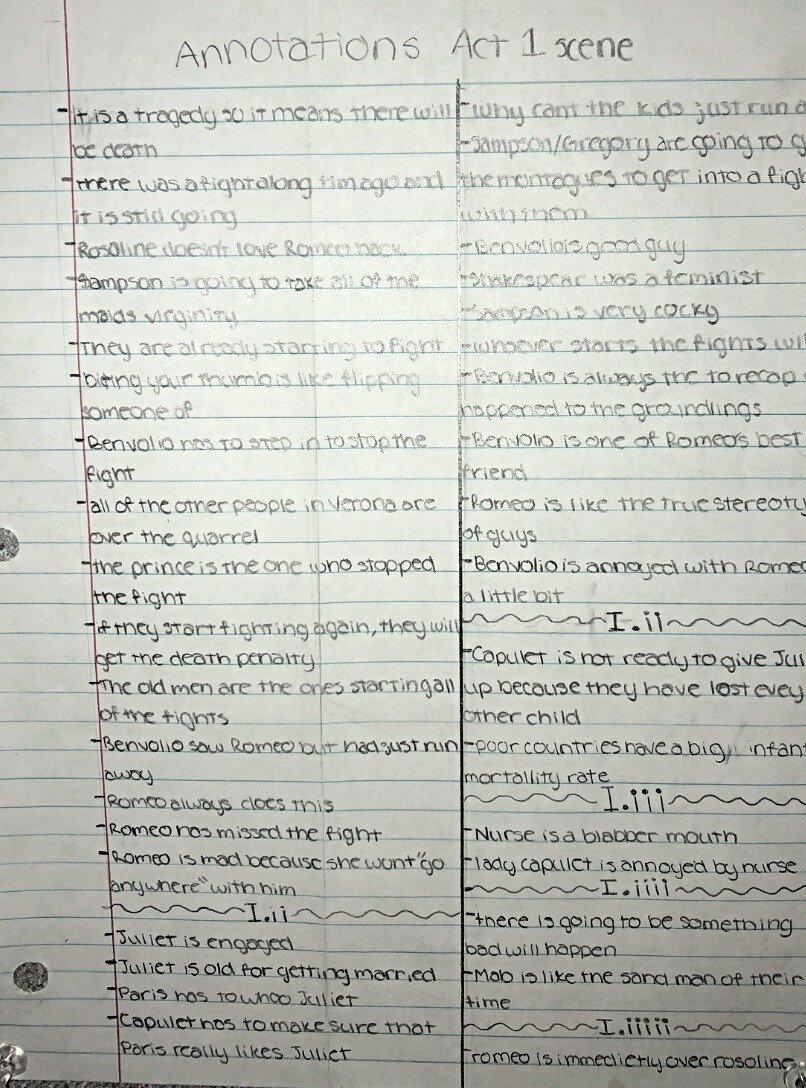 Annotations Act 1 scene
-It is a tragedy so it means there will
be death
-there was a fight along tim ago and
it is still going
-Rosaline doesn't love Romeo back
-Sampson is going to take all of the
maids virginity
-They are already starting to fight
-biting your thumb is like flipping
someone of
-Benvolio has to step in to stop the
fight
-all of the other people in Verona are
over the quarrel
-the prince is the one who stopped
the fight
-if they start fighting again, they will
get the death penalty
-The old men are the ones starting all
of the fights
-Benvolio saw Romeo but had just run
away
-Romeo always does this
-Romeo has missed the fight
-Romeo is mad because she wont "go
anywhere" with him
I.ii
-Juliet is engaged
-Juliet is old for getting married
-Paris has to whoo Juliet
-Capulet has to make sure that
Paris really likes Juliet
-why cant the kids just run
-Sampson/Gregory are going to
the montagues to get into a
with them
-Benvolio is good guy
-Shakespear was a feminist
-Sampson is very cocky
-whoever starts the fights
-Benvolio is always the to recap
happened to the groundlings
-Benvolio is one of Romeo's best
friend
-Romeo is like the true
of guys
-Benvolio is annoyed with Romeo
a little bit
I.ii
-Capulet is not ready to give
up because they have lost evey
other child
-poor countries have a big infant
mortallity rate
I.iii
-Nurse is a blabber mouth
-lady capulet is annoyed by nurse
I.iiii
-there is going to be something
bad will happen
-Mab is like the sand man of their
time
I.iiiii
-romeo is immedictly over rosaline